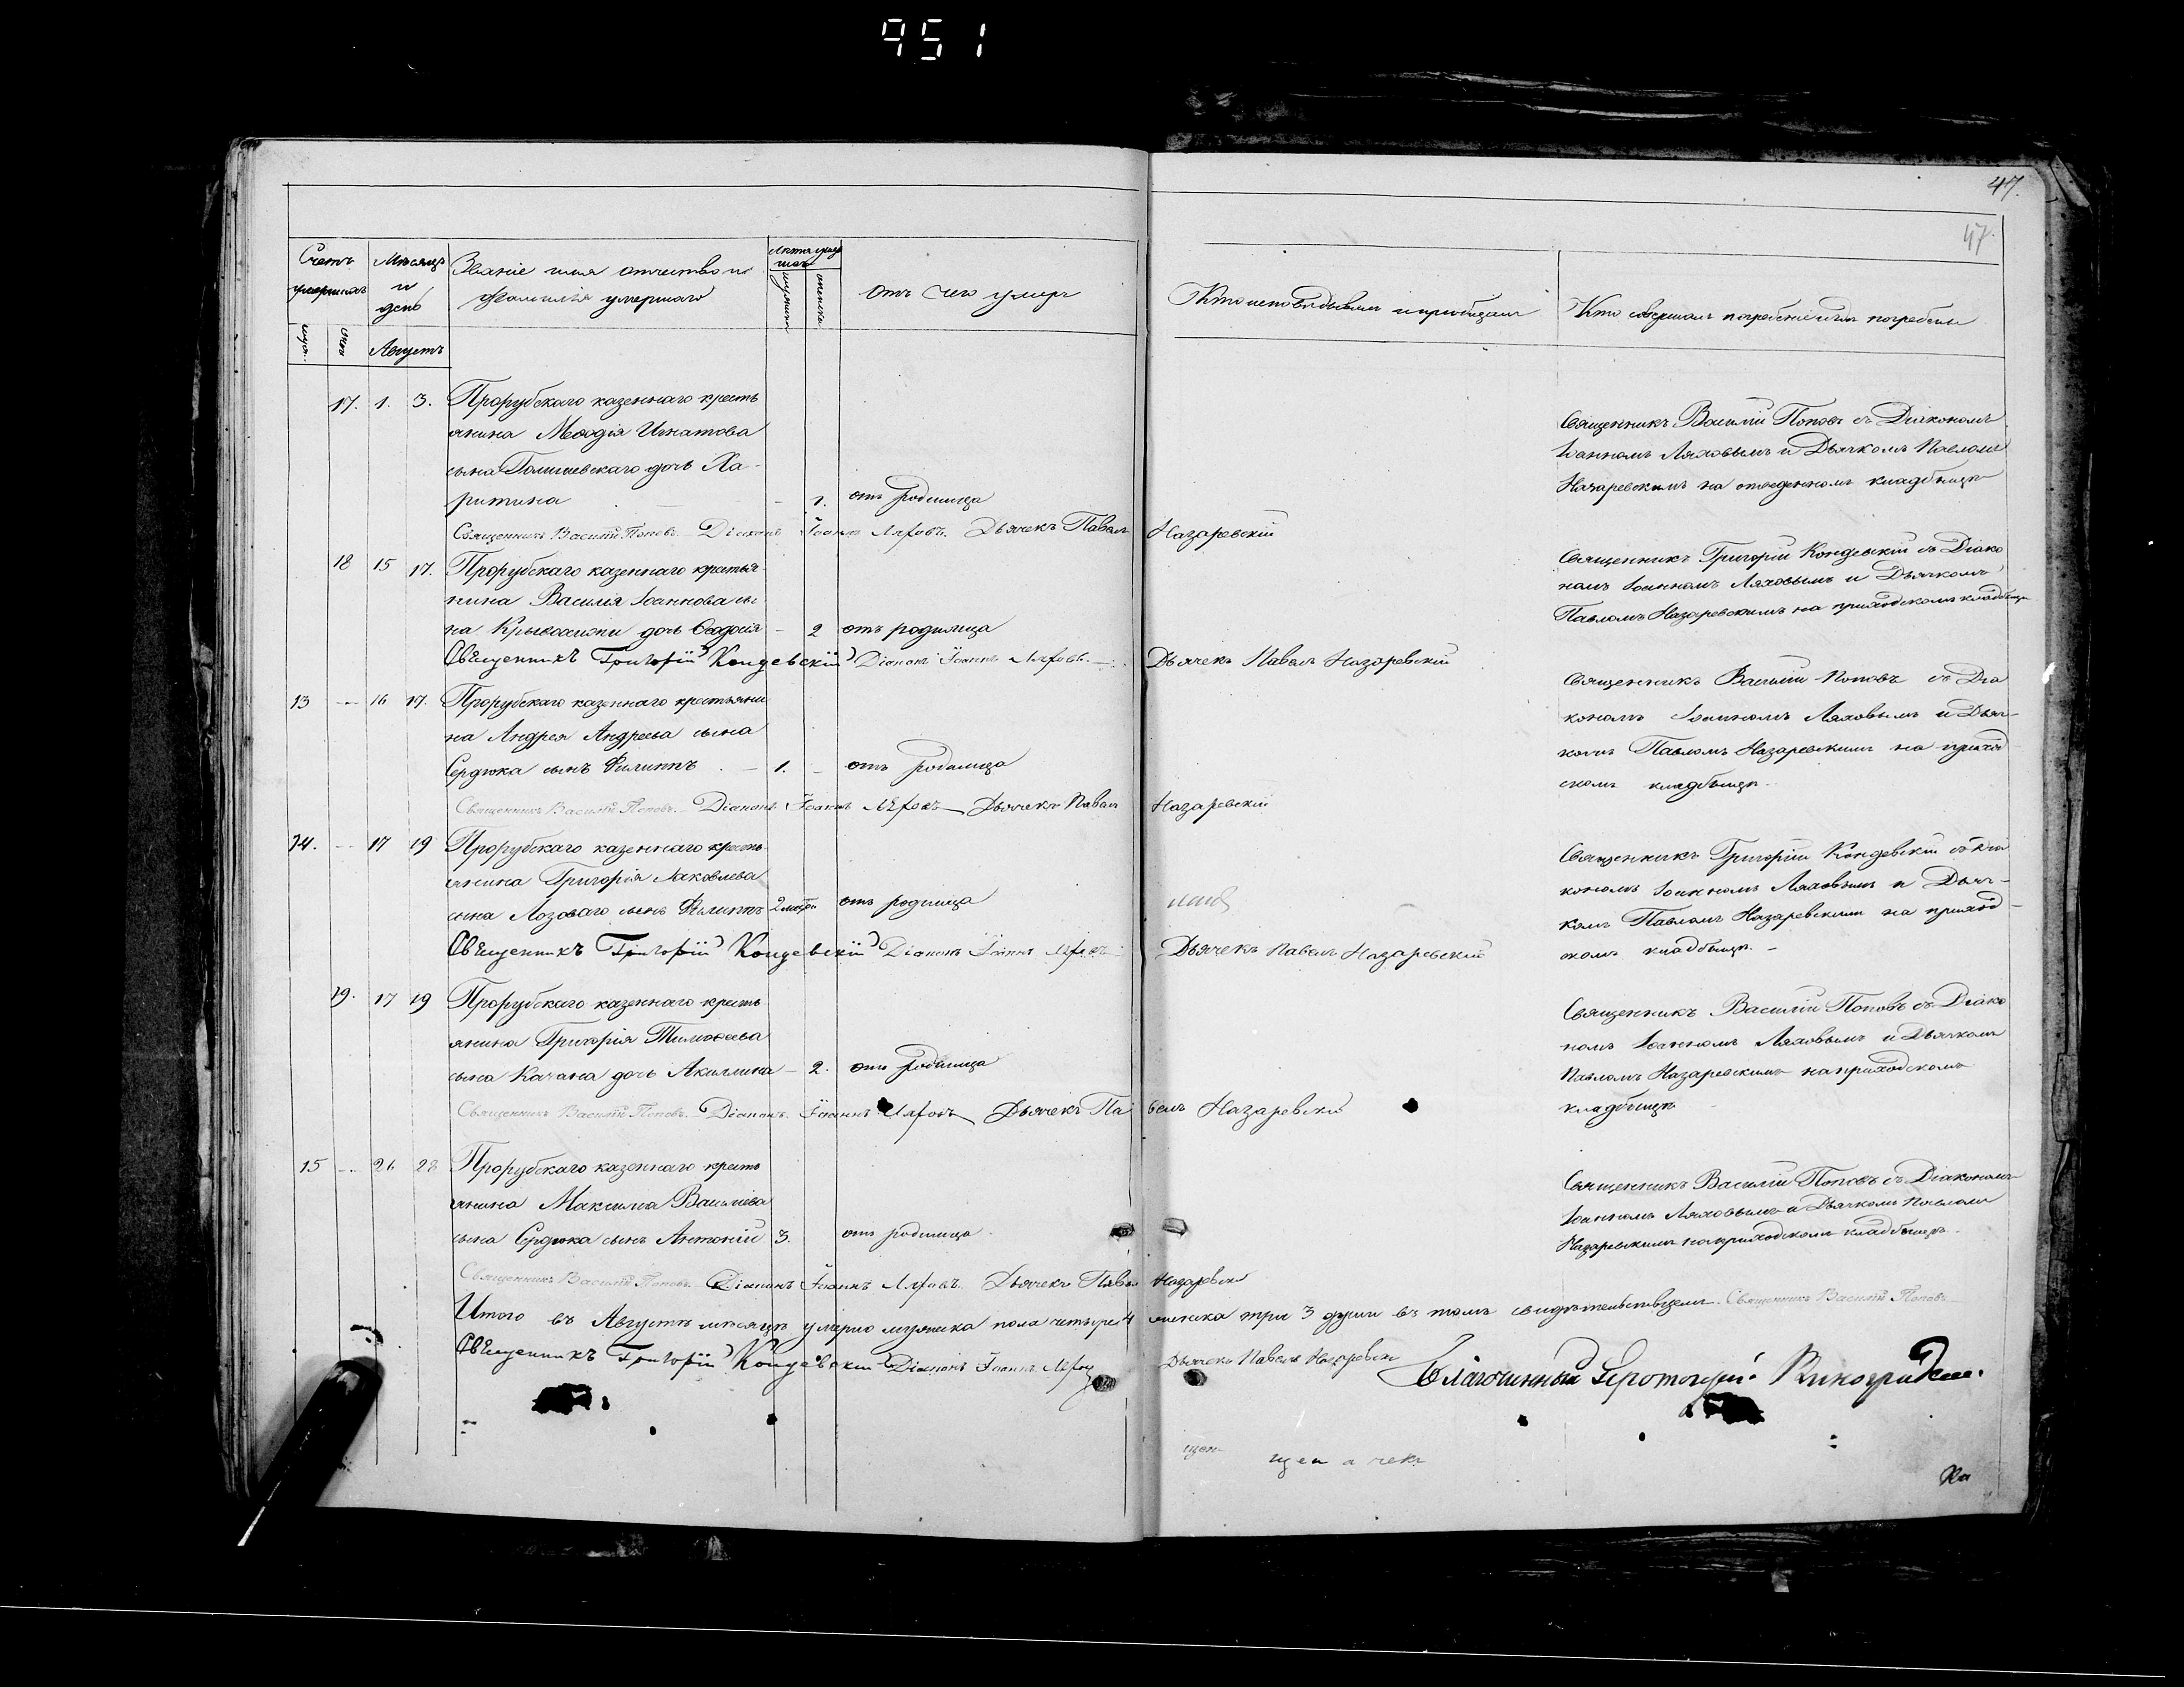 951
47.
47.
Счетъ умершихъ
Мѣсяцъ и день
Званіе имя отчество и фамилія умершаго
Лѣта умершаго
мужеска
женска
Отъ чего умеръ
Кто исповѣдывалъ и пріобщалъ
Кто совершалъ погребеніе и гдѣ погребены
муж.
жен
Августъ
17. 1. 3. Прорубскаго казеннаго кресть
янина Меѳодія Игнатова
сына Голишевскаго дочь Ха-
ритина - 1. отъ родимца
Священникъ Василій Поповъ съ Діакономъ
Іоанномъ Ляховымъ и Дьячкомъ Павломъ
Назаревскимъ на отведенномъ кладбищѣ
Священникъ Василій Поповъ. Діаконъ Іоаннъ Ляховъ. Дьячекъ Павелъ Назаревскій
18 15 17. Прорубскаго казеннаго крестья
нина Василія Іоаннова сы
на Крывошипи дочь Ѳеодосія - 2 отъ родимца
Священникъ Григорій Кондевскій съ Діако
номъ Іоанномъ Ляховымъ и Дьячкомъ
Павломъ Назаревскимъ на приходскомъ кладбищѣ
Священникъ Григорій Кондевскій Діаконъ Іоаннъ Ляховъ. Дьячекъ Павелъ Назаревскій
13 - 16 17. Прорубскаго казеннаго крестьяни
на Андрея Андреева сына
Сердюка сынъ Филиппъ - 1. - отъ родимца
Священникъ Василій Поповъ съ Діа
кономъ Іоанномъ Ляховымъ и Дьяч-
комъ Павломъ Назаревскимъ на приход
скомъ кладбищѣ.
Священникъ Василій Поповъ. Діаконъ Іоаннъ Ляховъ Дьячекъ Павелъ Назаревскій
14. - 17 19 Прорубскаго казеннаго кресть-
янина Григорія Яковлева
сына Лозоваго сынъ Филиппъ 2 отъ родимца
Священникъ Григорій Кондевскій съ Діа
кономъ Іоанномъ Ляховымъ и Дьяч-
комъ Павломъ Назаревскимъ на приход-
скомъ кладбищѣ. -
Священникъ Григорій Кондевскій Діаконъ Іоаннъ Ляховъ Дьячекъ Павелъ Назаревскій
19. 17 19 Прорубскаго казеннаго кресть
янина Григорія Тимоѳеева
сына Качана дочь Акилина - 2. отъ родимца
Священникъ Василій Поповъ съ Діако
номъ Іоанномъ Ляховымъ и Дьячкомъ
Павломъ Назаревскимъ на приходскомъ
кладбищѣ
Священникъ Василій Поповъ. Діаконъ Іоаннъ Ляховъ Дьячекъ Павелъ Назаревскій
15 - 26 28 Прорубскаго казеннаго кресть
янина Максима Василіева
сына Сердюка сынъ Антоній 3. отъ родимца
Священникъ Василій Поповъ съ Діакономъ
Іоанномъ Ляховымъ и Дьячкомъ Павломъ
Назаревскимъ на приходскомъ кладбищѣ.
Священникъ Василій Поповъ. Діаконъ Іоаннъ Ляховъ. Дьячекъ Павелъ Назаревскій
Итого въ Августѣ мѣсяцѣ умерло мужеска пола четыре 4 женска три 3 души въ томъ свидѣтельствуемъ. Священникъ Василій Поповъ
Священникъ Григорій Кондевскій Діаконъ Іоаннъ Ляховъ Дьячекъ Павелъ Назаревскій
Благочинный Виноградскій